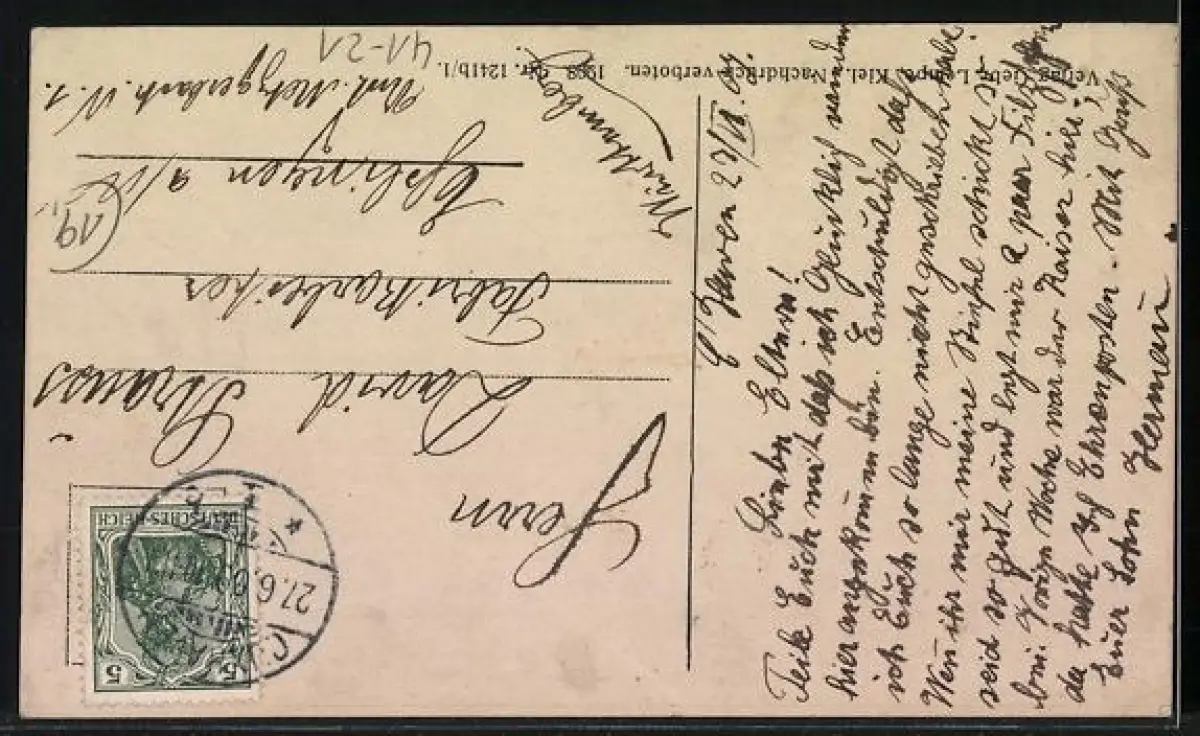 C'Haven 27/VI. 09.
Liebe Eltern!
Teile Euch mit daß ich glücklich wieder
hier angekommen bin. Entschuldigt daß
ich Euch so lange nicht geschrieben habe
Wen ihr mir meine Stiefel schickt so
seid so gut und legt mir 2 paar Filzsohlen
bei. Vorige Woche war der Kaiser hier
da hatte Ich Ehrenposten. Mit Gruß
Euer Sohn Herman
Herrn
David Strauss
Fabrikarbeiter
Esslingen a/N
Unt. Metzgerbach N. 1.
Württemberg
(19
41-21
Verlag Gebr. Lempe, Kiel. Nachdruck verboten. 1908 Nr. 1241b/1.
DEUTSCHES REICH
5 5
27.6.09